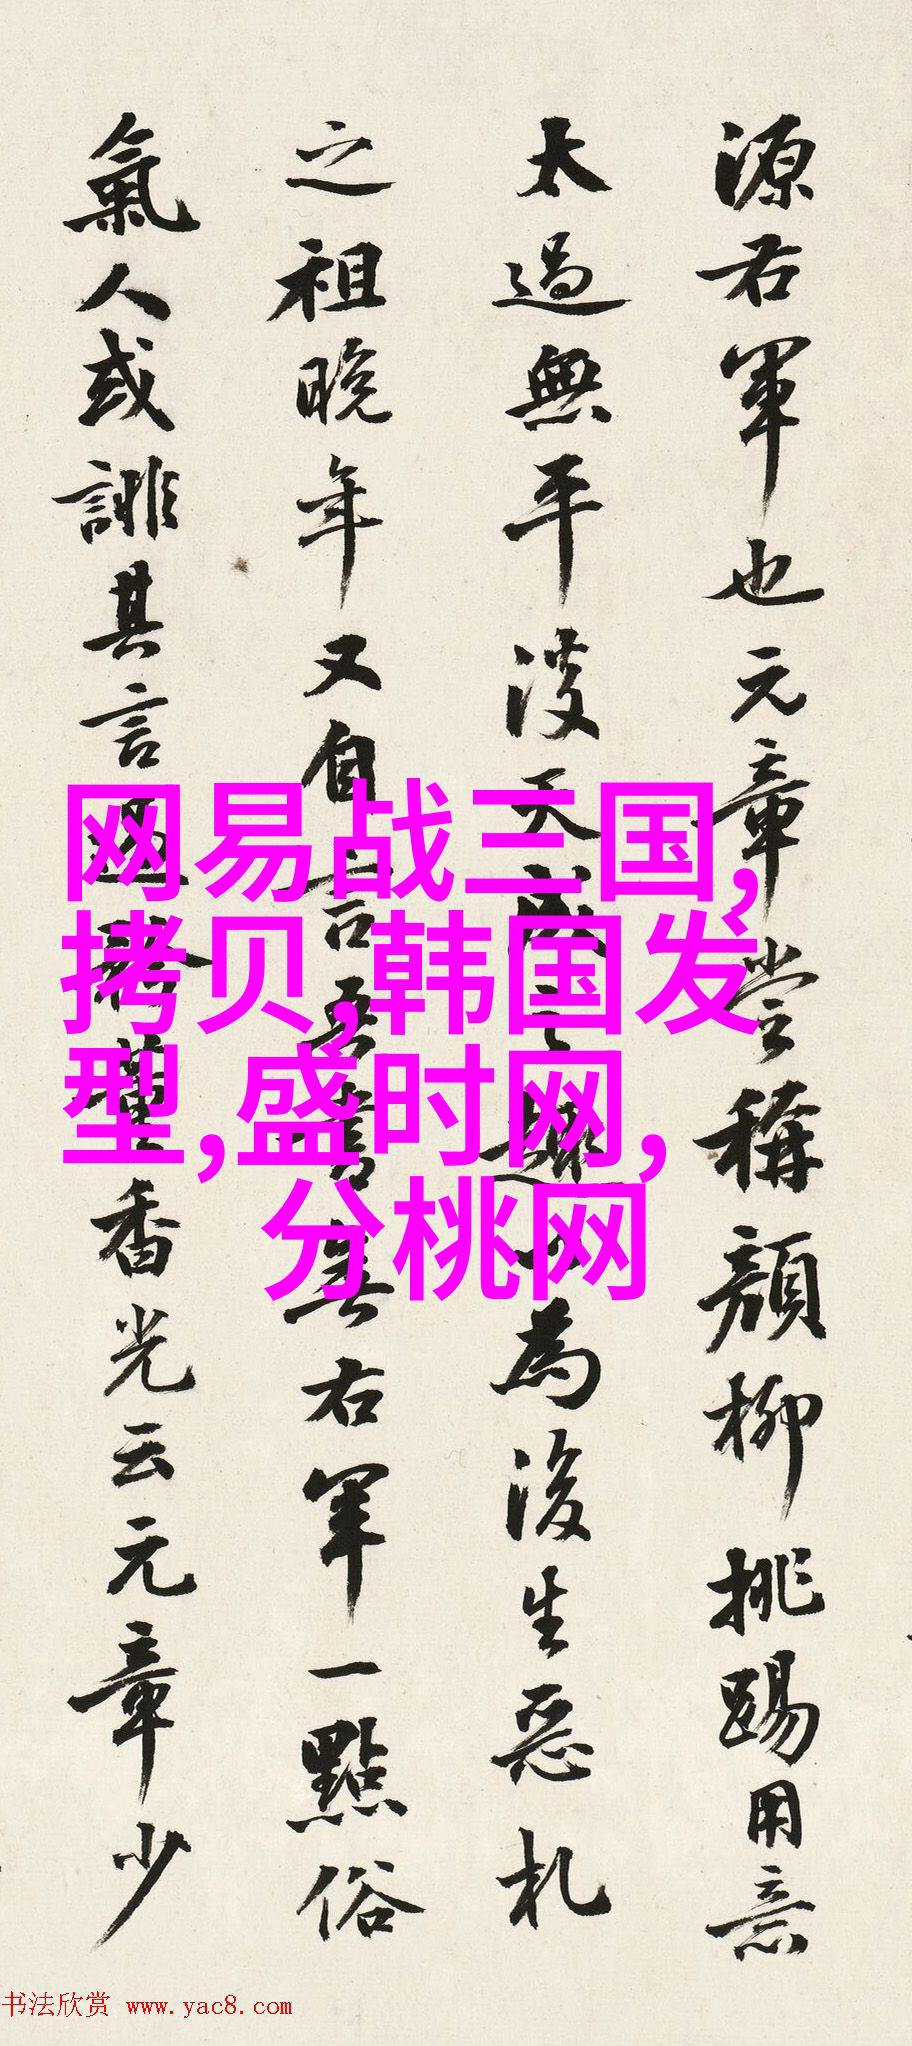 源右軍也元章嘗稱顏柳挑踢用意
太過無平淡天成之趣為後生惡札
之祖晚年又自言吾書無右軍一點俗
氣人或誹其言過香光云元章少
网易战三国,
拷贝,韩国发
型,盛时网,
分桃网
书法欣赏 www.yac8.com